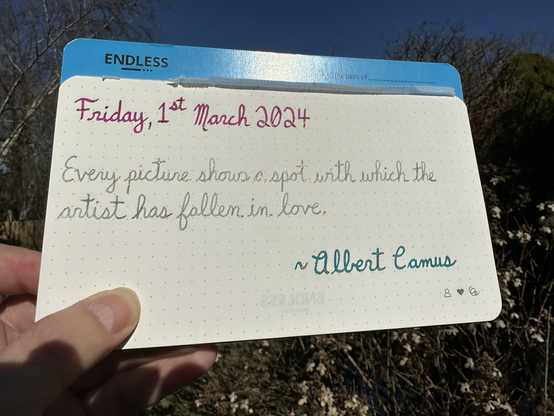 ENDLESS
Friday, 1st March 2024
Every picture shows a spot with which the
artist has fallen in love.
~ Albert Camus
ENDLESS